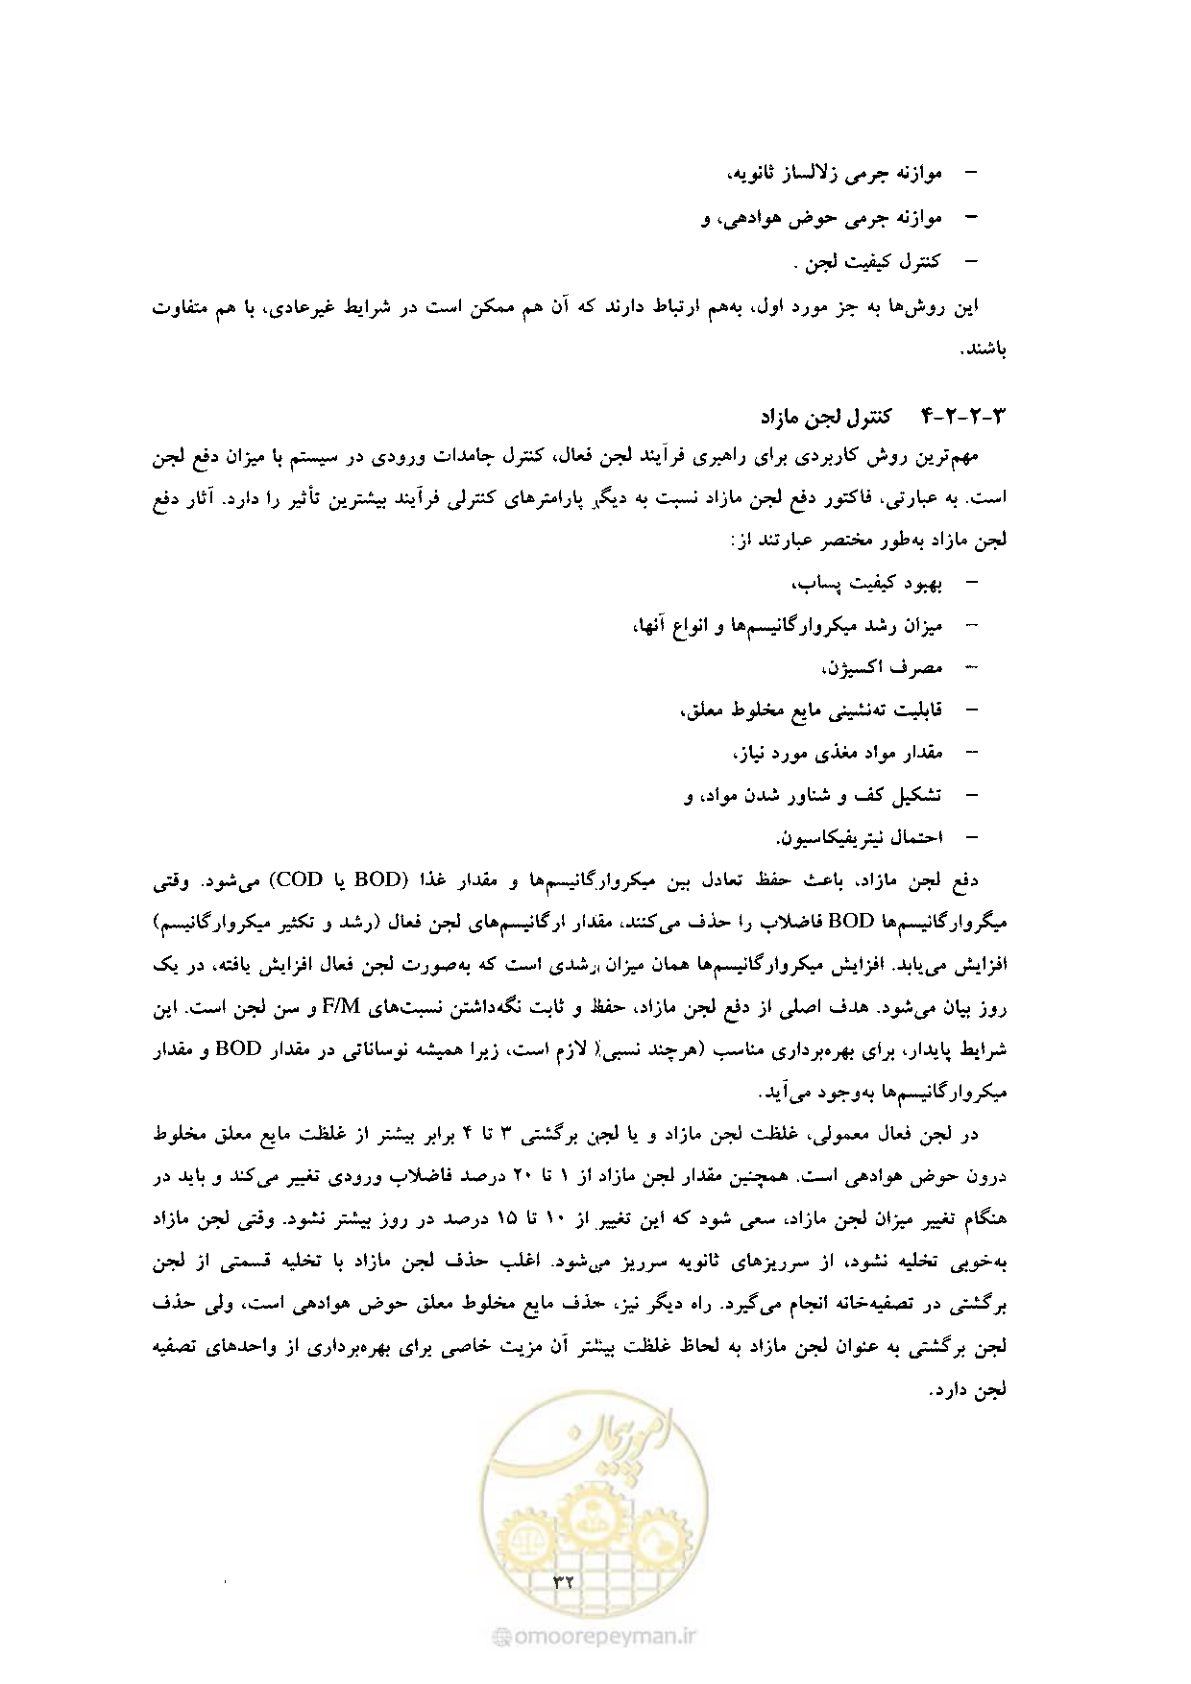 – موازنه جرمی زلالساز ثانویه،
– موازنه جرمی حوض هوادهی، و
– کنترل کیفیت لجن .
این روش‌ها به جز مورد اول، به‌هم ارتباط دارند که آن هم ممکن است در شرایط غیرعادی، با هم متفاوت
باشند.
۴-۲-۲-۳ کنترل لجن مازاد
مهم‌ترین روش کاربردی برای راهبری فرآیند لجن فعال، کنترل جامدات ورودی در سیستم با میزان دفع لجن
است. به عبارتی، فاکتور دفع لجن مازاد نسبت به دیگر پارامترهای کنترلی فرآیند بیشترین تأثیر را دارد. آثار دفع
لجن مازاد به‌طور مختصر عبارتند از:
– بهبود کیفیت پساب،
– میزان رشد میکروارگانیسم‌ها و انواع آنها،
– مصرف اکسیژن،
– قابلیت ته‌نشینی مایع مخلوط معلق،
– مقدار مواد مغذی مورد نیاز،
– تشکیل کف و شناور شدن مواد، و
– احتمال نیتریفیکاسیون.
دفع لجن مازاد، باعث حفظ تعادل بین میکروارگانیسم‌ها و مقدار غذا (BOD یا COD) می‌شود. وقتی
میگروارگانیسم‌ها BOD فاضلاب را حذف می‌کنند، مقدار ارگانیسم‌های لجن فعال (رشد و تکثیر میکروارگانیسم)
افزایش می‌یابد. افزایش میکروارگانیسم‌ها همان میزان رشدی است که به‌صورت لجن فعال افزایش یافته، در یک
روز بیان می‌شود. هدف اصلی از دفع لجن مازاد، حفظ و ثابت نگه‌داشتن نسبت‌های F/M و سن لجن است. این
شرایط پایدار، برای بهره‌برداری مناسب (هرچند نسبی) لازم است، زیرا همیشه نوساناتی در مقدار BOD و مقدار
میکروارگانیسم‌ها به‌وجود می‌آید.
در لجن فعال معمولی، غلظت لجن مازاد و یا لجن برگشتی ۳ تا ۴ برابر بیشتر از غلظت مایع معلق مخلوط
درون حوض هوادهی است. همچنین مقدار لجن مازاد از ۱ تا ۲۰ درصد فاضلاب ورودی تغییر می‌کند و باید در
هنگام تغییر میزان لجن مازاد، سعی شود که این تغییر از ۱۰ تا ۱۵ درصد در روز بیشتر نشود. وقتی لجن مازاد
به‌خوبی تخلیه نشود، از سرریزهای ثانویه سرریز می‌شود. اغلب حذف لجن مازاد با تخلیه قسمتی از لجن
برگشتی در تصفیه‌خانه انجام می‌گیرد. راه دیگر نیز، حذف مایع مخلوط معلق حوض هوادهی است، ولی حذف
لجن برگشتی به عنوان لجن مازاد به لحاظ غلظت بیشتر آن مزیت خاصی برای بهره‌برداری از واحدهای تصفیه
لجن دارد.
امور پیمان
۳۲
omoorepeyman.ir